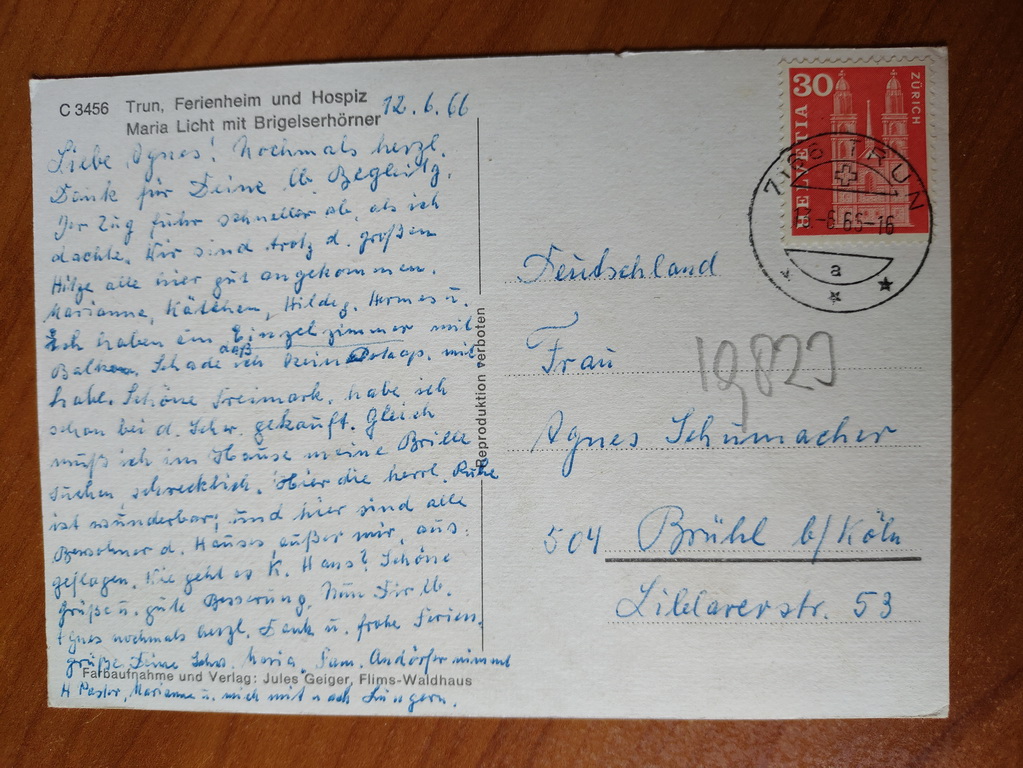 C 3456 Trun, Ferienheim und Hospiz
Maria Licht mit Brigelserhörner
12.6.66
Liebe Agnes! Nochmals herzl.
Dank für Deine lb. Begleitg.
Der Zug fuhr schneller ab, als ich
dachte. Wir sind trotz d. großen
Hitze alle hier gut angekommen.
Marianne, Käthchen, Hildeg. Hermes u.
ich haben ein Einzelzimmer mit
Balkon. Schade daß ich kein mit
habe. Schöne Freimark. habe ich
schon bei d. Schw. gekauft. Gleich
muß ich im Hause meine Brille
suchen schrecklich. Hier die herrl. Ruhe
ist wunderbar, und hier sind alle
Bewohner d. Hauses, außer mir, aus-
geflogen. Wie geht es K. Hans? Schöne
Grüße u. gute Besserung. Nun Dir lb.
Agnes nochmals herzl. Dank u. frohe Ferien.
grüße Deine Schw. Maria, Fam. Andörfer nimmt
H Pastor, Marianne u. mich mit nach Lungern.
Farbaufnahme und Verlag: Jules Geiger, Flims-Waldhaus
Reproduktion verboten
30
HELVETIA
ZÜRICH
7166 TRUN
-6 65-16
a
Deutschland
Frau
19823
Agnes Schumacher
504 Brühl b/Köln
Liblarerstr. 53